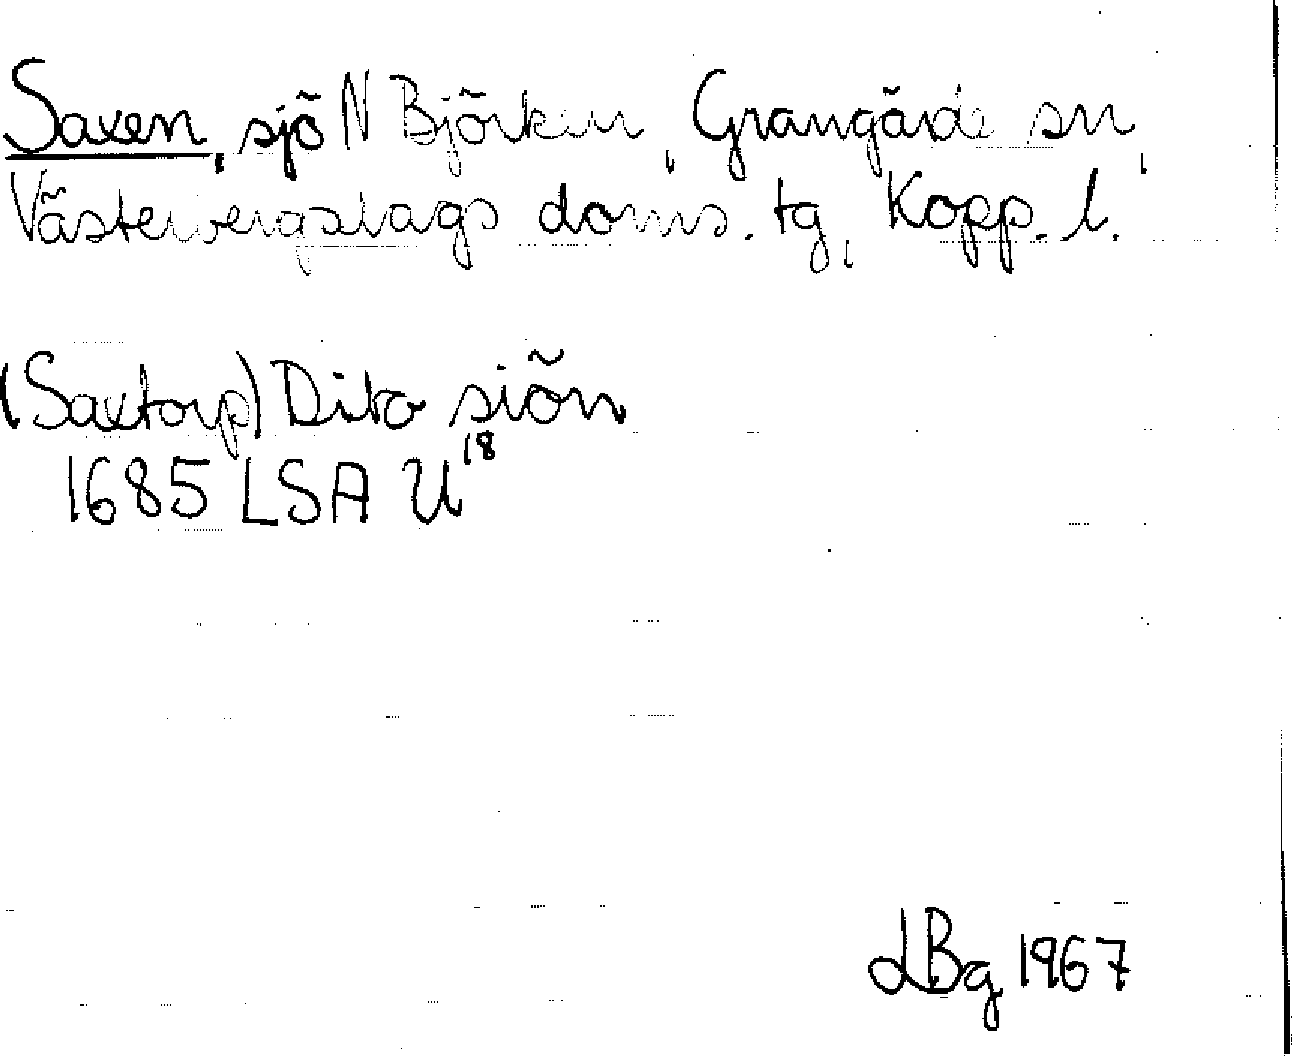 Saxen, sjö N Björken, Grangärde sn,
Västerbergslags doms. tg, Kopp. l.
(Saxtorp) Dito siön
1685 LSA U18
LBg 1967